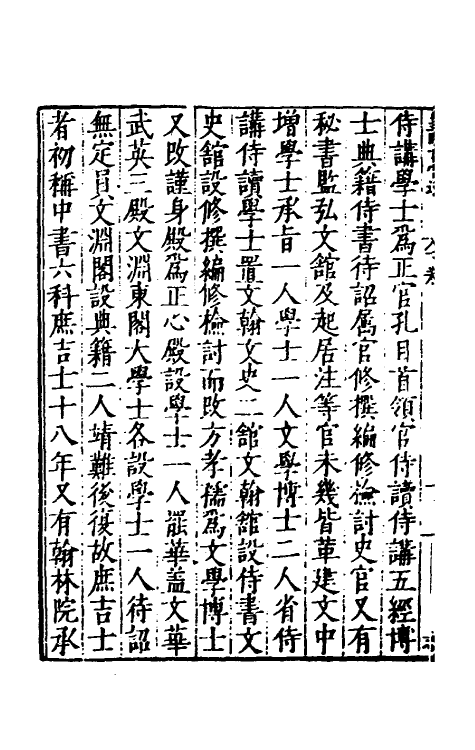 侍講學士爲正官孔目首領官侍讀侍講五經博
士典籍侍書待詔属官修撰編修檢討史官又有
秘書監弘文館及起居注等官未幾皆革建文中
增學士承旨一人學士一人文學博士二人省侍
講侍讀學士置文翰文史二舘文翰舘設侍書文
史舘設修撰編修檢討而改方孝孺爲文學博士
又改謹身殿爲正心殿設學士一人罷華盖文華
武英三殿文淵東閣大學士各設學士一人待詔
無定員文淵閣設典籍二人靖難後復故庶吉士
者初稱中書六科庶吉士十八年又有翰林院承